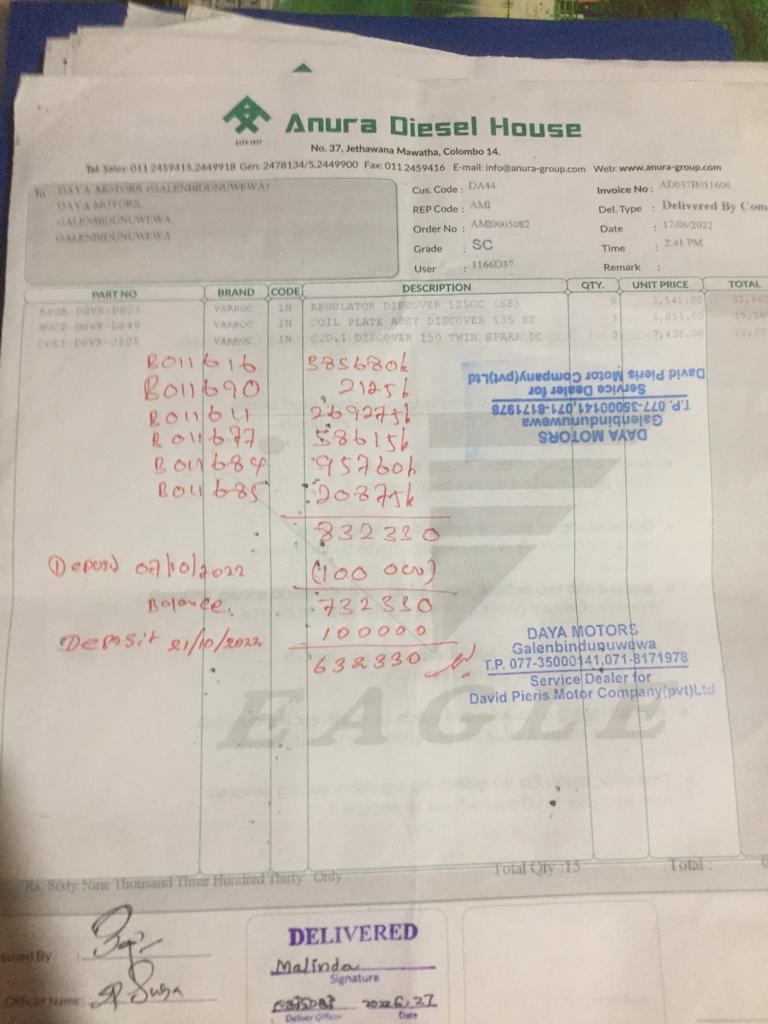 ESTD 1977
Anura Diesel House
No. 37, Jethawana Mawatha, Colombo 14.
Tel: Sales: 011 2459415,2449918 Gen: 2478134/5,2449900 Fax: 011 2459416 E-mail: info@anura-group.com Web: www.anura-group.com
To DAYA MOTORS (GALENBIDUNUWEWA)
DAYA MOTORS,
GALENBIDUNUWEWA,
GALENBIDUNUWEWA
Cus. Code : DA44
REP Code : AMI
Order No : AMI0005082
Grade : SC
User : 1166D37
Invoice No : AD037B011606
Del. Type : Delivered By Com
Date : 17/06/2022
Time : 2:41 PM
Remark :
PART NO BRAND CODE DESCRIPTION QTY. UNIT PRICE TOTAL
VARROC IN REGULATOR DISCOVER 125CC (SS) 9 3,540.00
VARROC IN COIL PLATE ASSY DISCOVER 135 SS 3 5,055.00
VARROC IN C.D.I DISCOVER 150 TWIN SPARK DC 7,435.00
B011616 385680
B011690 21256
B011611 269275
B011677 58615
B011684 95760
B011685 20875
832330
Deposit 07/10/2022 (100 000)
Balance. 732330
Deposit 21/10/2022 100000
632330
DAYA MOTORS
Galenbindunuwewa
T.P. 077-35000141,071-8171978
Service Dealer for
David Pieris Motor Company(pvt)Ltd
DAYA MOTORS
Galenbindunuwewa
T.P. 077-35000141,071-8171978
Service Dealer for
David Pieris Motor Company(pvt)Ltd
EAGLE
Rs. Sixty Nine Thousand Three Hundred Thirty Only
Total Qty :15 Total :
DELIVERED
Malinda
Signature
2022.6.27
Deliver Officer Date
Officer Name :